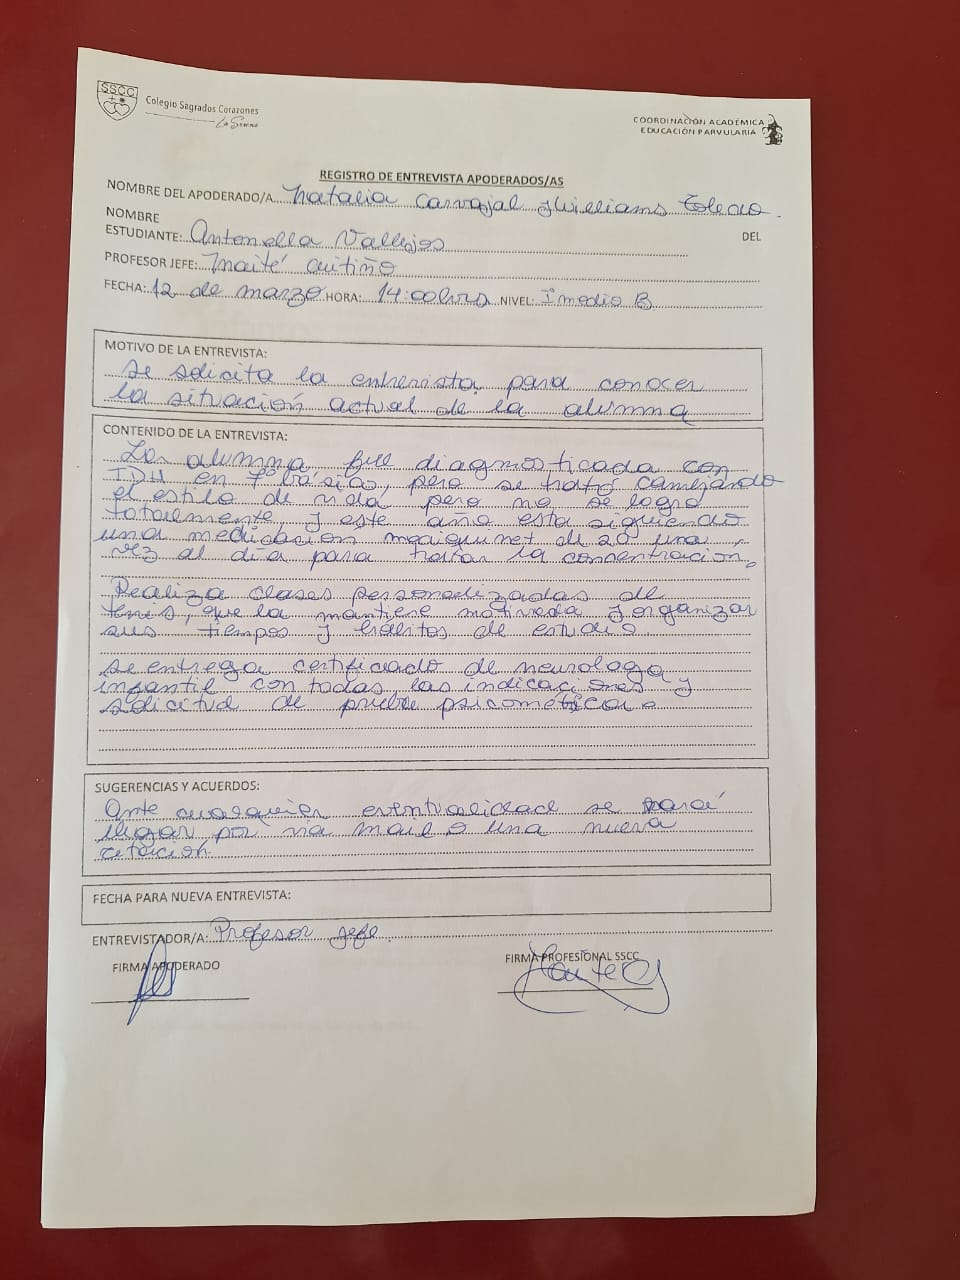 SSCC
Colegio Sagrados Corazones
La Serena
COORDINACIÓN ACADÉMICA
EDUCACIÓN PARVULARIA
REGISTRO DE ENTREVISTA APODERADOS/AS
NOMBRE DEL APODERADO/A: Natalia Carvajal y Williams Toledo.
NOMBRE DEL
ESTUDIANTE: Antonella Vallejos
PROFESOR JEFE: Maité Cutiño
FECHA: 12 de marzo HORA: 14:00 hrs NIVEL: I medio B
MOTIVO DE LA ENTREVISTA:
Se solicita la entrevista para conocer
la situación actual de la alumna
CONTENIDO DE LA ENTREVISTA:
La alumna fue diagnosticada con
TDH en 7º básico, pero se trató
el estilo de vida, pero no se logro
totalmente, y este año esta siguiendo
una medicación de 20 una
vez al día para tratar la concentración.
Realiza clases personalizadas de
tenis, que la mantiene motivada y organizar
sus tiempos y hábitos de estudio.
Se entrega certificado de neurologo
infantil con todas las indicaciones y
solicitud de prueba psicométrica.
SUGERENCIAS Y ACUERDOS:
Ante cualquier eventualidad se hará
llegar por via mail o una nueva
citación.
FECHA PARA NUEVA ENTREVISTA:
ENTREVISTADOR/A: Profesor jefe
FIRMA APODERADO
FIRMA PROFESIONAL SSCC